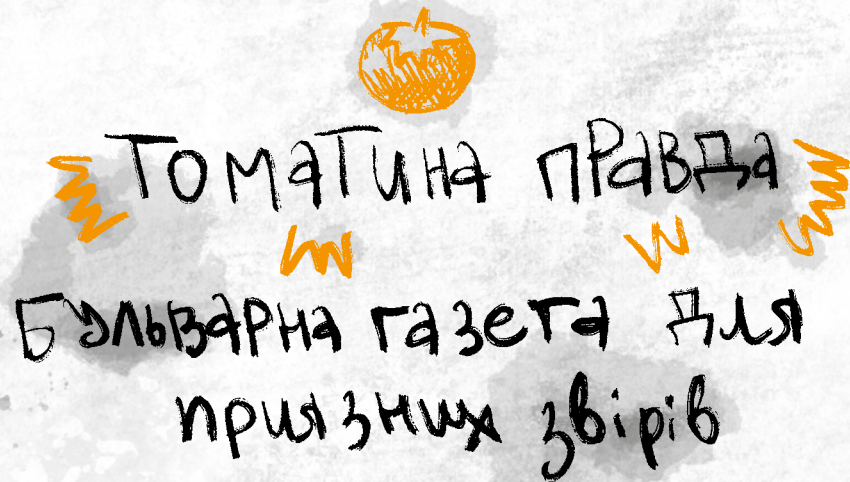 ТОМАТИНА ПРАВДА
Бульварна газета для
приязних звірів